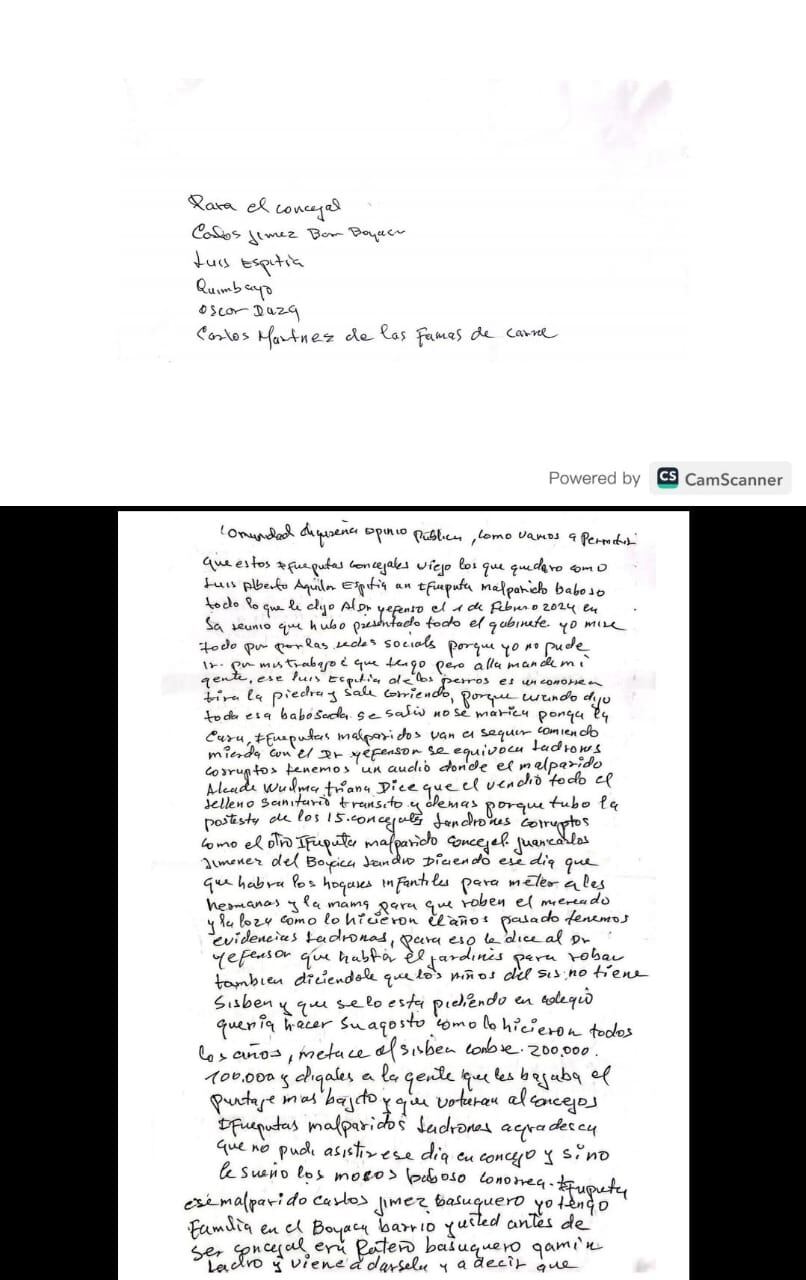 Para el concejal
Carlos Jimez Bon Boyacu
Luis Espitia
Quimbayo
Oscar Daza
Carlos Martnez de las Famas de carne
Powered by CS CamScanner
Comunidad diqueseña opinio Pública, como vamos a Permitir
que estos Ifueputas concejales viejo los que quedaro como
Luis Alberto Aguilar Espitia an Ifueputa malparido baboso
todo lo que le dijo Al Dr yefenso el 1 de febrero 2024 en
Sa reunio que hubo presentado todo el gabinete. yo mire
todo por las redes socials porque yo no pude
Ir. por mis trabajo que tengo pero alla mande mi
gente, ese Luis Espitia de los perros es un conorrea
tira la piedra y sale corriendo, porque cuando dijo
toda esa babosada se salio no se marica ponga la
Cara, Ifueputas malparidos van a seguir comiendo
mierda con el Dr yefenson se equivoca Ladrones
corruptos tenemos un audio donde el malparido
Alcade Wulma triana Dice que el vendio todo el
relleno Sanitario transito y demas porque tubo la
postesta de los 15. concejales landrones corruptos
como el otro Ifueputa malparido concejel. Juancarlos
Jimenez del Boyica Landro Diciendo ese dia que
que habra los hogares infantiles para meter a les
hermanas y la mama para que roben el mercado
y la loza como lo hicieron el años pasado tenemos
evidencias Ladronas, para eso le dice al Dr
yefensor que habra el jardines para robar
tambien diciendole que los niños del sis no tiene
Sisben y que se lo esta pidiendo en colegio
queria hacer su agosto como lo hicieron todos
los años, metace al sisben combse. 200.000.
100.000 y digales a la gente que les bajaba el
puntaje mas bajito y que votaran al concejos
Ifueputas malparidos Ladrones agradesca
que no pude asistir ese dia en concejo y sino
le sueno los mocos baboso conorrea. Ifuputa
ese malparido carlos jimez basuquero yo tengo
Familia en el Boyaca barrio y usted antes de
ser concejal era Ratero basuquero gamin
Ladro y viene a darsela y a decir que